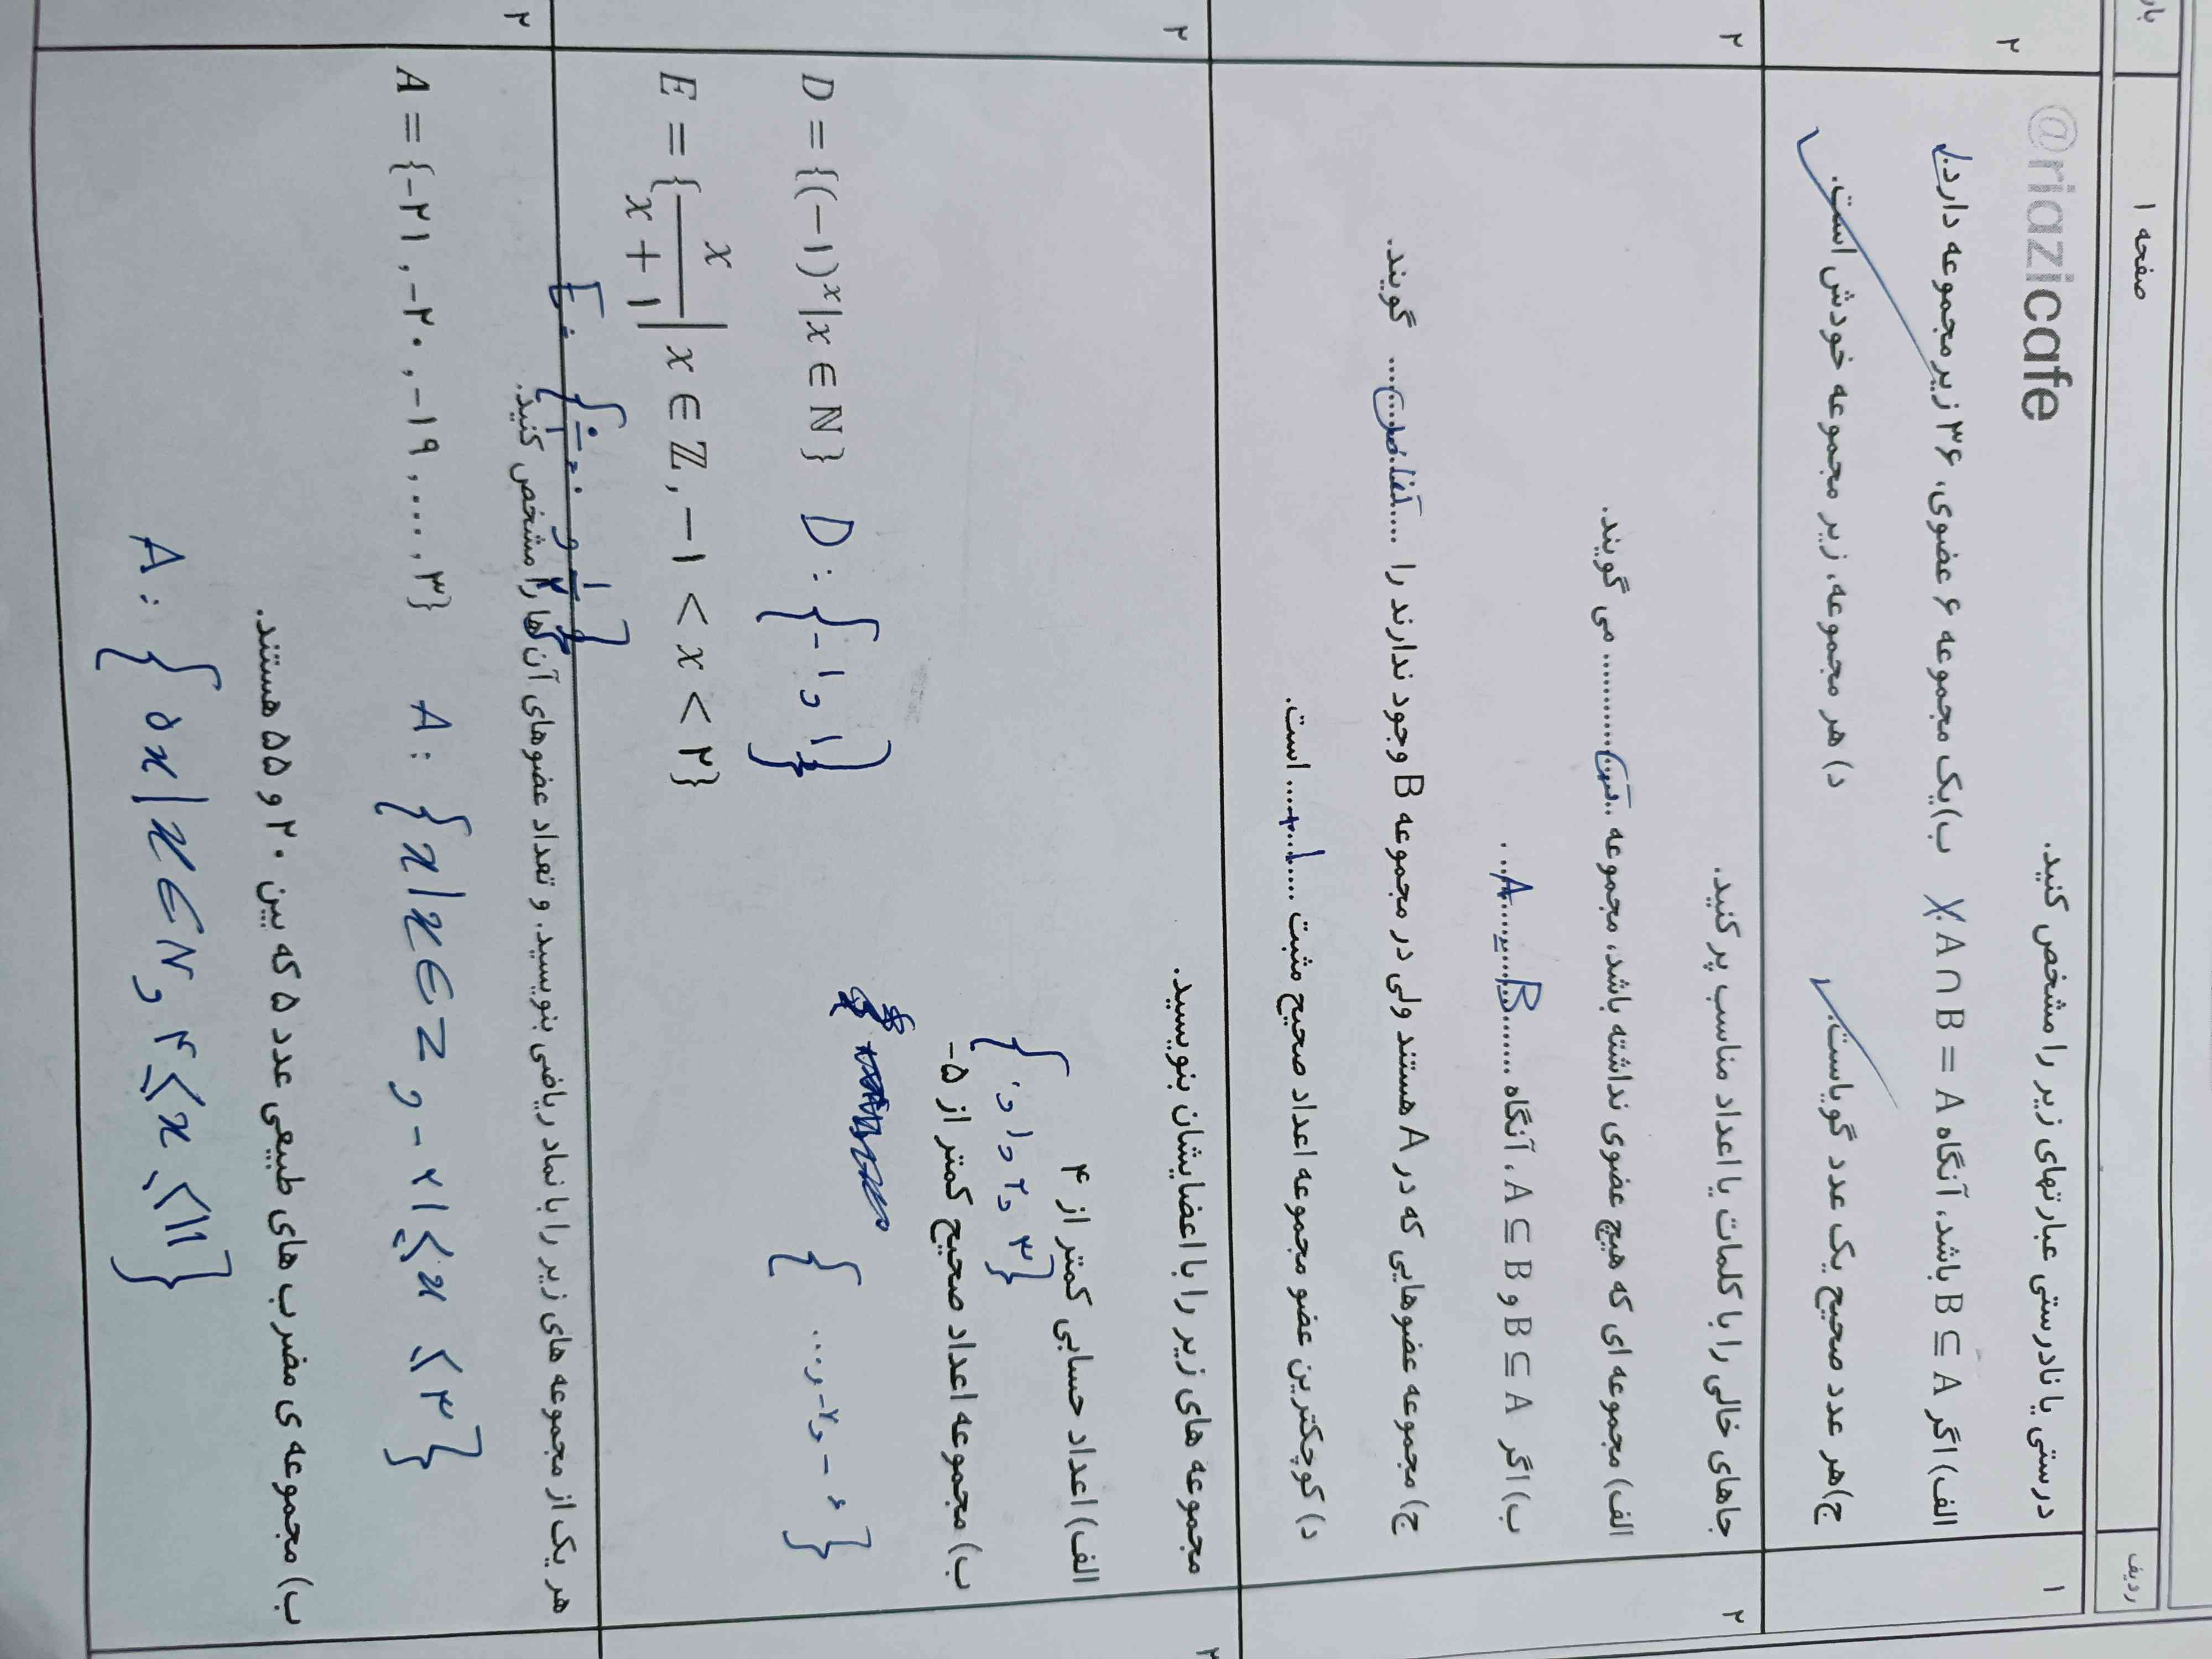 بار
صفحه ۱
ردیف
@riazicafe
۲
درستی یا نادرستی عبارتهای زیر را مشخص کنید.
۱
الف) اگر B ⊆ A باشد، آنگاه A ∩ B = A X ب) یک مجموعه ۶ عضوی، ۳۶ زیر مجموعه دارد.
ج) هر عدد صحیح یک عدد گویاست. ✓ د) هر مجموعه، زیر مجموعه خودش است. ✓
۲
جاهای خالی را با کلمات یا اعداد مناسب پر کنید.
۲
الف) مجموعه ای که هیچ عضوی نداشته باشد، مجموعه ..تهی........... می گویند.
ب) اگر A ⊆ B و B ⊆ A ، آنگاه ........B..=..A....
ج) مجموعه عضوهایی که در A هستند ولی در مجموعه B وجود ندارند را ....تفاضل...... گویند.
د) کوچکترین عضو مجموعه اعداد صحیح مثبت .....+۱..... است.
۲
مجموعه های زیر را با اعضایشان بنویسید.
۳
الف) اعداد حسابی کمتر از ۴
{۰, ۱, ۲, ۳}
ب) مجموعه اعداد صحیح کمتر از ۵-
{ ..., -۷, -۶ }
D = {(-۱)^x | x ∈ ℕ} D : {-۱, ۱}
E = {x/(x + ۱) | x ∈ ℤ, -۱ < x < ۲}
E : {۰/۱ = ۰, ۱/۲}
۲
هر یک از مجموعه های زیر را با نماد ریاضی بنویسید. و تعداد عضوهای آن ها را مشخص کنید.
A = {-۲۱, -۲۰, -۱۹, ..., ۳} A : {x | x ∈ Z, -۲۱ ≤ x ≤ ۳}
ب) مجموعه ی مضرب های طبیعی عدد ۵ که بین ۲۰ و ۵۵ هستند.
A : {۵x | x ∈ N, ۴ ≤ x ≤ ۱۱}